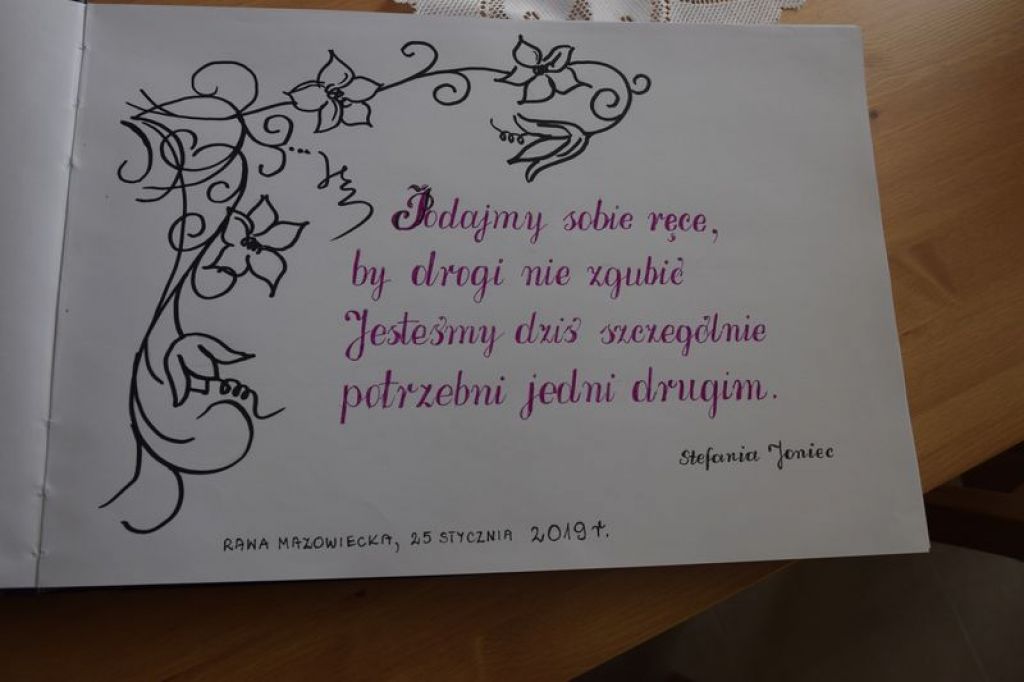 Podajmy sobie ręce,
by drogi nie zgubić
Jesteśmy dziś szczególnie
potrzebni jedni drugim.
Stefania Joniec
RAWA MAZOWIECKA, 25 STYCZNIA 2019 r.